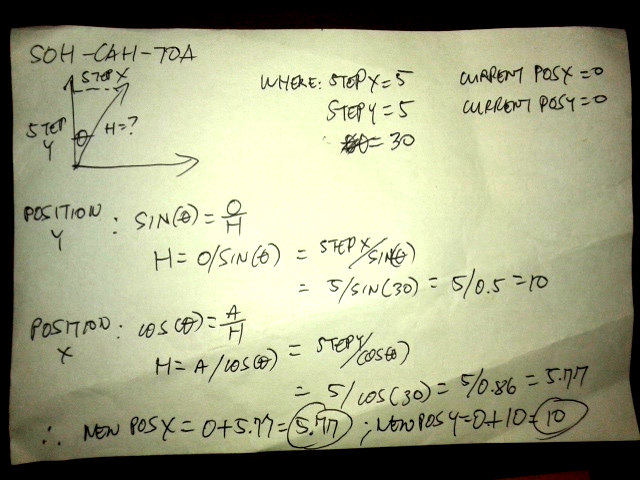 SOH-CAH-TOA
STEP X
STEP Y
θ
H=?
WHERE: STEP X=5
STEP Y=5
=30
CURRENT POSX=0
CURRENT POSY=0
POSITION Y : SIN(θ)=O/H
H=O/SIN(θ) = STEP X/SIN(θ)
= 5/SIN(30) = 5/0.5 = 10
POSITION X : COS(θ)=A/H
H=A/COS(θ) = STEP Y/COS(θ)
= 5/COS(30) = 5/0.86 = 5.77
∴ NEW POS X = 0+5.77=5.77 ; NEW POS Y=0+10=10